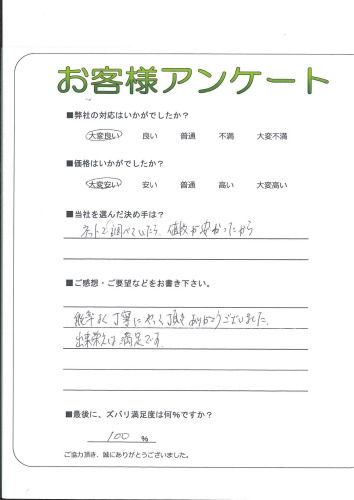 お客様アンケート
■弊社の対応はいかがでしたか？
大変良い 良い 普通 不満 大変不満
■価格はいかがでしたか？
大変安い 安い 普通 高い 大変高い
■当社を選んだ決め手は？
ネットで調べていたら、値段が安かったから
■ご感想・ご要望などをお書き下さい。
能率よく丁寧にやって頂きありがとうございました。
出来栄えは満足です。
■最後に、ズバリ満足度は何%ですか？
100 %
ご協力頂き、誠にありがとうございました。